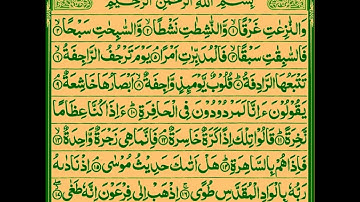 بِسْمِ اللّٰهِ الرَّحْمٰنِ الرَّحِيْمِ
وَالنّٰزِعٰتِ غَرْقًا ۙ﴿۱﴾ وَّالنّٰشِطٰتِ نَشْطًا ۙ﴿۲﴾ وَّالسّٰبِحٰتِ سَبْحًا ۙ﴿۳﴾
فَالسّٰبِقٰتِ سَبْقًا ۙ﴿۴﴾ فَالْمُدَبِّرٰتِ اَمْرًا ۘ﴿۵﴾ يَوْمَ تَرْجُفُ الرَّاجِفَةُ ۙ﴿۶﴾
تَتْبَعُهَا الرَّادِفَةُ ؕ﴿۷﴾ قُلُوْبٌ يَّوْمَئِذٍ وَّاجِفَةٌ ۙ﴿۸﴾ اَبْصَارُهَا خَاشِعَةٌ ۘ﴿۹﴾
يَقُوْلُوْنَ ءَاِنَّا لَمَرْدُوْدُوْنَ فِى الْحَافِرَةِ ؕ﴿۱۰﴾ ءَاِذَا كُنَّا عِظَامًا
نَّخِرَةً ؕ﴿۱۱﴾ قَالُوْا تِلْكَ اِذًا كَرَّةٌ خَاسِرَةٌ ۘ﴿۱۲﴾ فَاِنَّمَا هِىَ زَجْرَةٌ وَّاحِدَةٌ ۙ﴿۱۳﴾
فَاِذَا هُمْ بِالسَّاهِرَةِ ؕ﴿۱۴﴾ هَلْ اَتٰٮكَ حَدِيْثُ مُوْسٰى ۘ﴿۱۵﴾ اِذْ نَادٰٮهُ
رَبُّهٗ بِالْوَادِ الْمُقَدَّسِ طُوًى ۚ﴿۱۶﴾ اِذْهَبْ اِلٰى فِرْعَوْنَ اِنَّهٗ طَغٰى ۖ﴿۱۷﴾